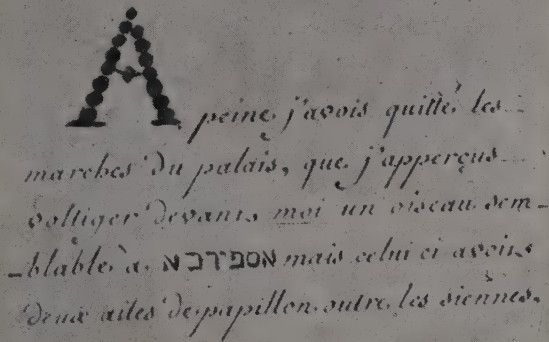 A peine j'avois quitté les
marches du palais, que j'apperçus
voltiger devant moi un oiseau sem-
-blable à mais celui ci avoit
deux ailes de papillon outre les siennes.